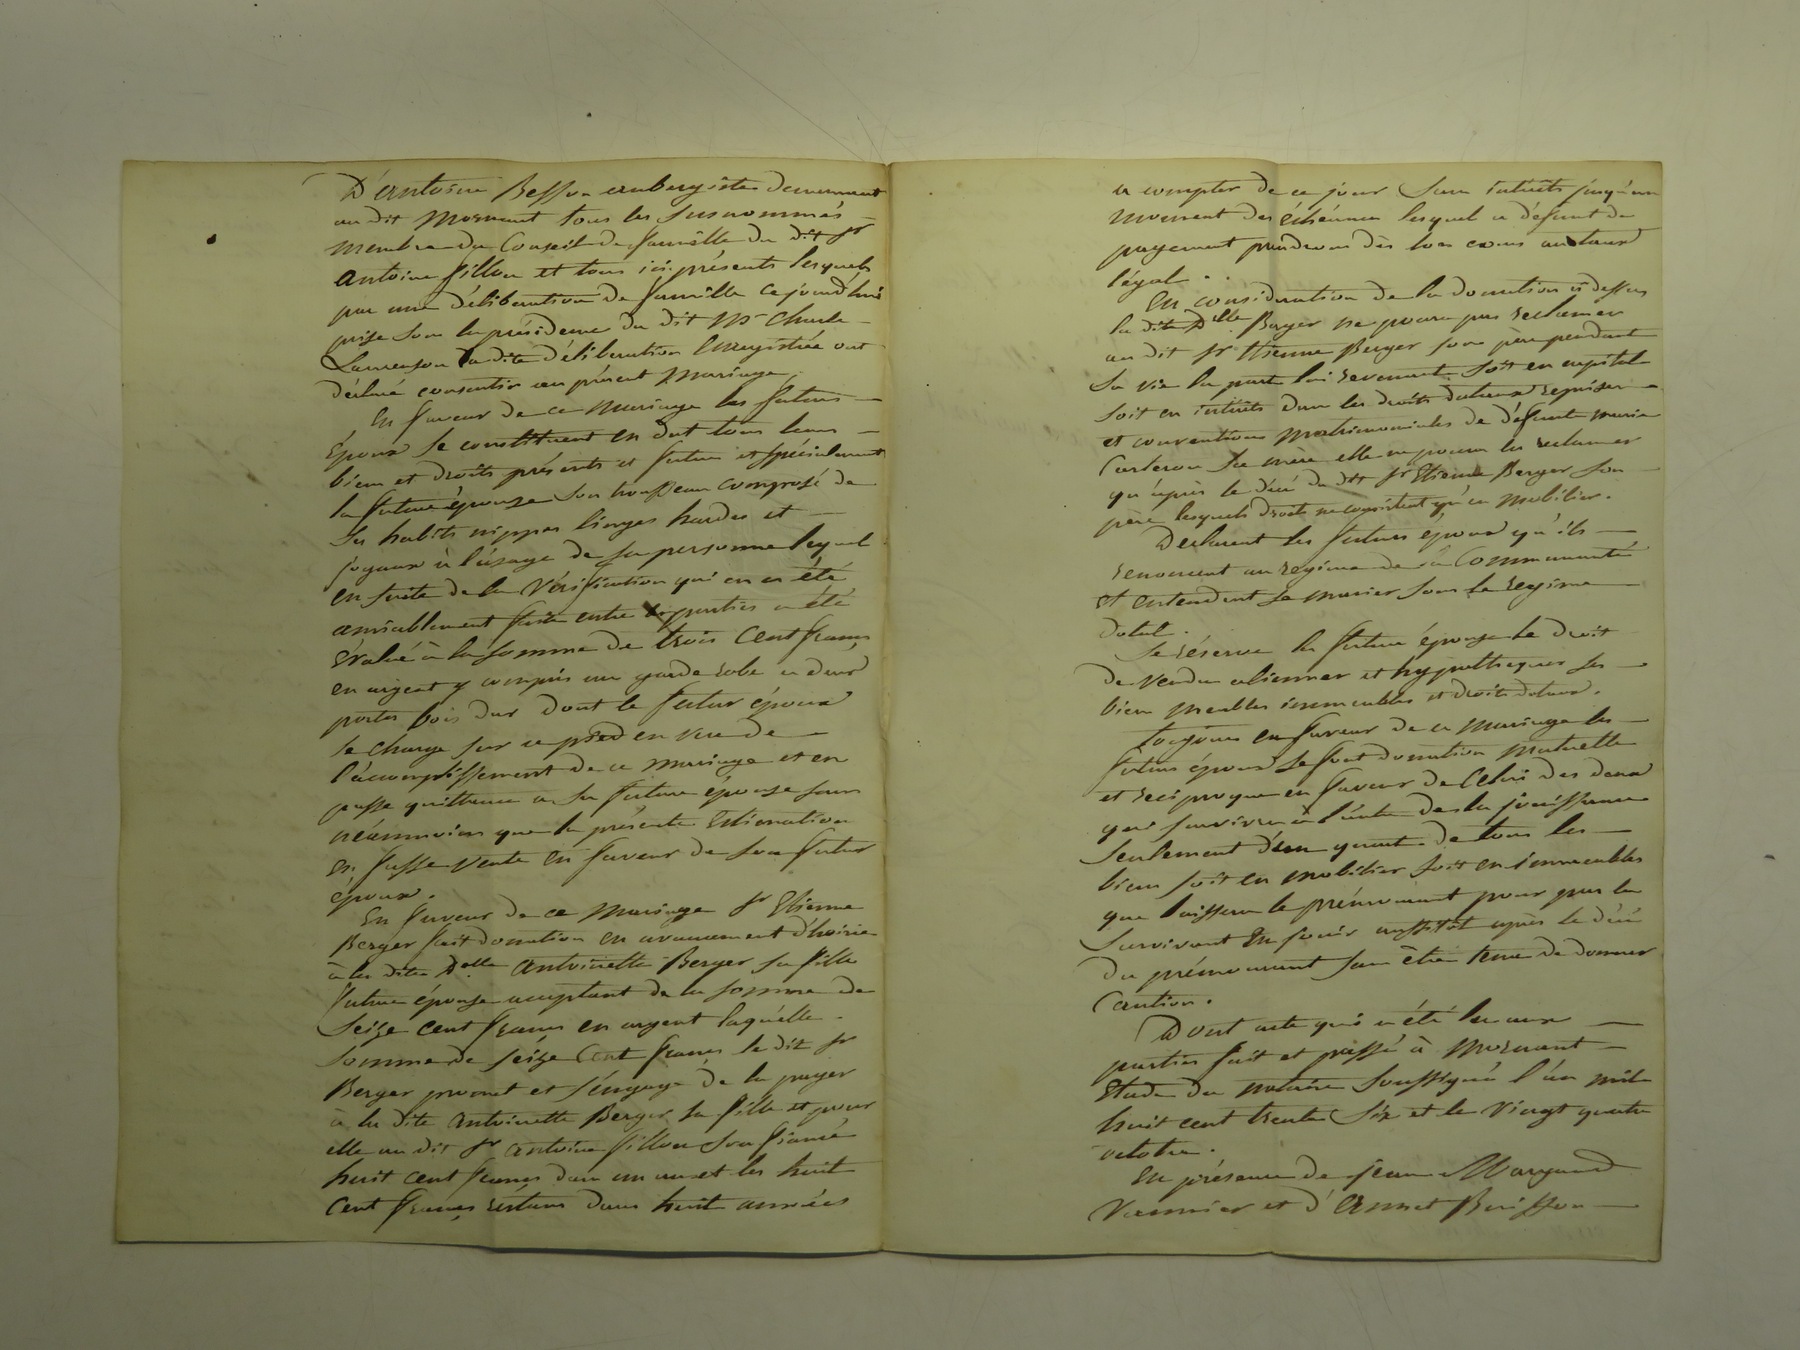 D'antoine Besson aubergiste demeurant
au dit Mornant tous les susnommés
membre du Conseil de famille du dit sr
antoine fillon et tous ici présents lesquels
par une déliberation de famille ce jourd'hui
prise sous la présidence du dit Mr Charle
Laurenson la dite déliberation Enregistrée ont
déclaré consentir au présent Mariage,
En faveur de ce Mariage les futurs
époux se constituent en dot tous leurs
biens et droits présents et futurs et spécialement
la future épouse son trousseau composé de
ses habits nippes linges hardes et
joyaux à l'usage de sa personne lequel
en suite de la Vérification qui en a été
amiablement faite entre les parties a été
évalué à la somme de trois Cent francs
en argent y compris une garde robe a deux
portes bois dur dont le futur époux
se charge sur ce pied en vue de
l'accomplissement de ce mariage et en
passe quittance a sa future épouse sans
néanmoins que la présente Estimation
en fasse vente en faveur de son futur
époux.
En faveur de ce Mariage sr Etienne
Berger fait donation en avancement d'hoirie
à la dite Delle Antoinette Berger sa fille
future épouse acceptant de la somme de
Seize cent francs en argent laquelle
somme de seize Cent francs le dit sr
Berger promet et s'engage de la payer
à la dite Antoinette Berger sa fille et pour
elle au dit sr Antoine fillon son fiancé
huit cent francs dans un an et les huit
Cent francs restans dans huit années
a compter de ce jour Sans intérêts jusqu'au
moment des échéances lesquel a défaut de
payement prendrons dès lors cours au taux
légal.
En considération de la donation ci dessus
la dite Delle Berger ne pourra pas reclamer
au dit sr Etienne Berger son père pendant
Sa vie la part lui revenant soit en capital
soit en intérêts dans les droits dotaux reprises
et conventions Matrimoniales de défunte marie
Carteron Sa mère elle ne pourra les reclamer
qu'après le décé du dit sr Etienne Berger Son
père lesquels droits ne consistent qu'en Mobilier.
Déclarent les futurs époux qu'ils
renoncent au regime de la Communauté
et entendent se marier Sous le regime
dotal.
Se réserve la future épouse le droit
de vendre alienner et hypothequer ses
biens meubles immeubles et droits dotaux.
toujours en faveur de ce mariage les
futurs époux se font donation Mutuelle
et reciproque en faveur de Celui des deux
qui Survivra à l'autre de la jouissance
Seulement de tous les
biens soit en mobilier soit en immeubles
que laissera le prémourant pour par le
Survivant En jouir aussitôt après le décé
du prémourant sans être tenu de donner
Caution.
Dont acte qui a été lu aux
parties fait et passé à Mornant
Etude du notaire Soussigné l'an mil
huit cent trente Six et le Vingt quatre
octobre.
En présence de jean Margand
Vannier et d'Annet Buisson